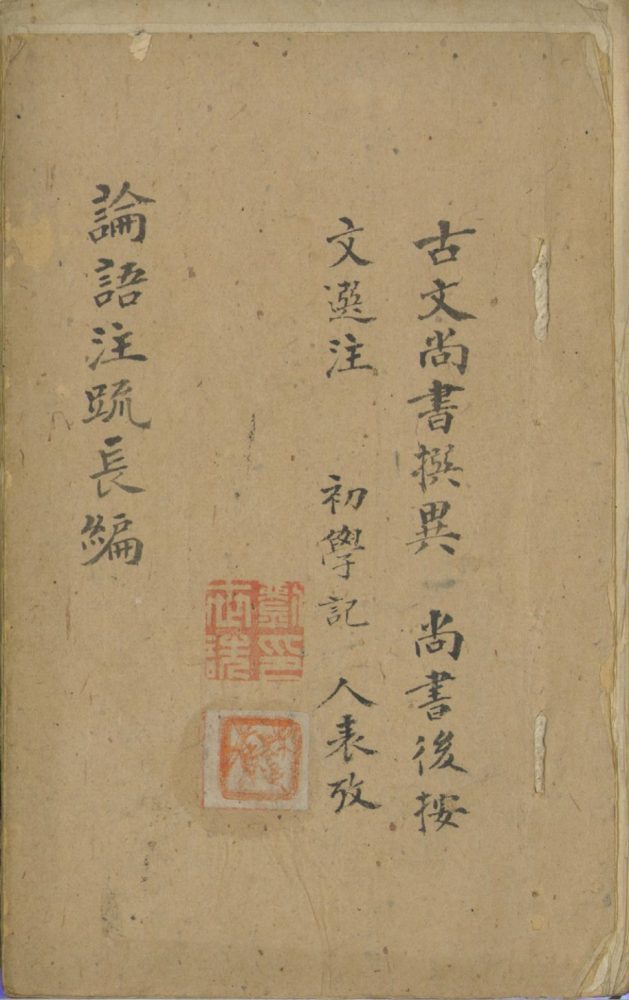 古文尚書撰異 尚書後按
文選注 初學記 人表攷
論語注䟽長編